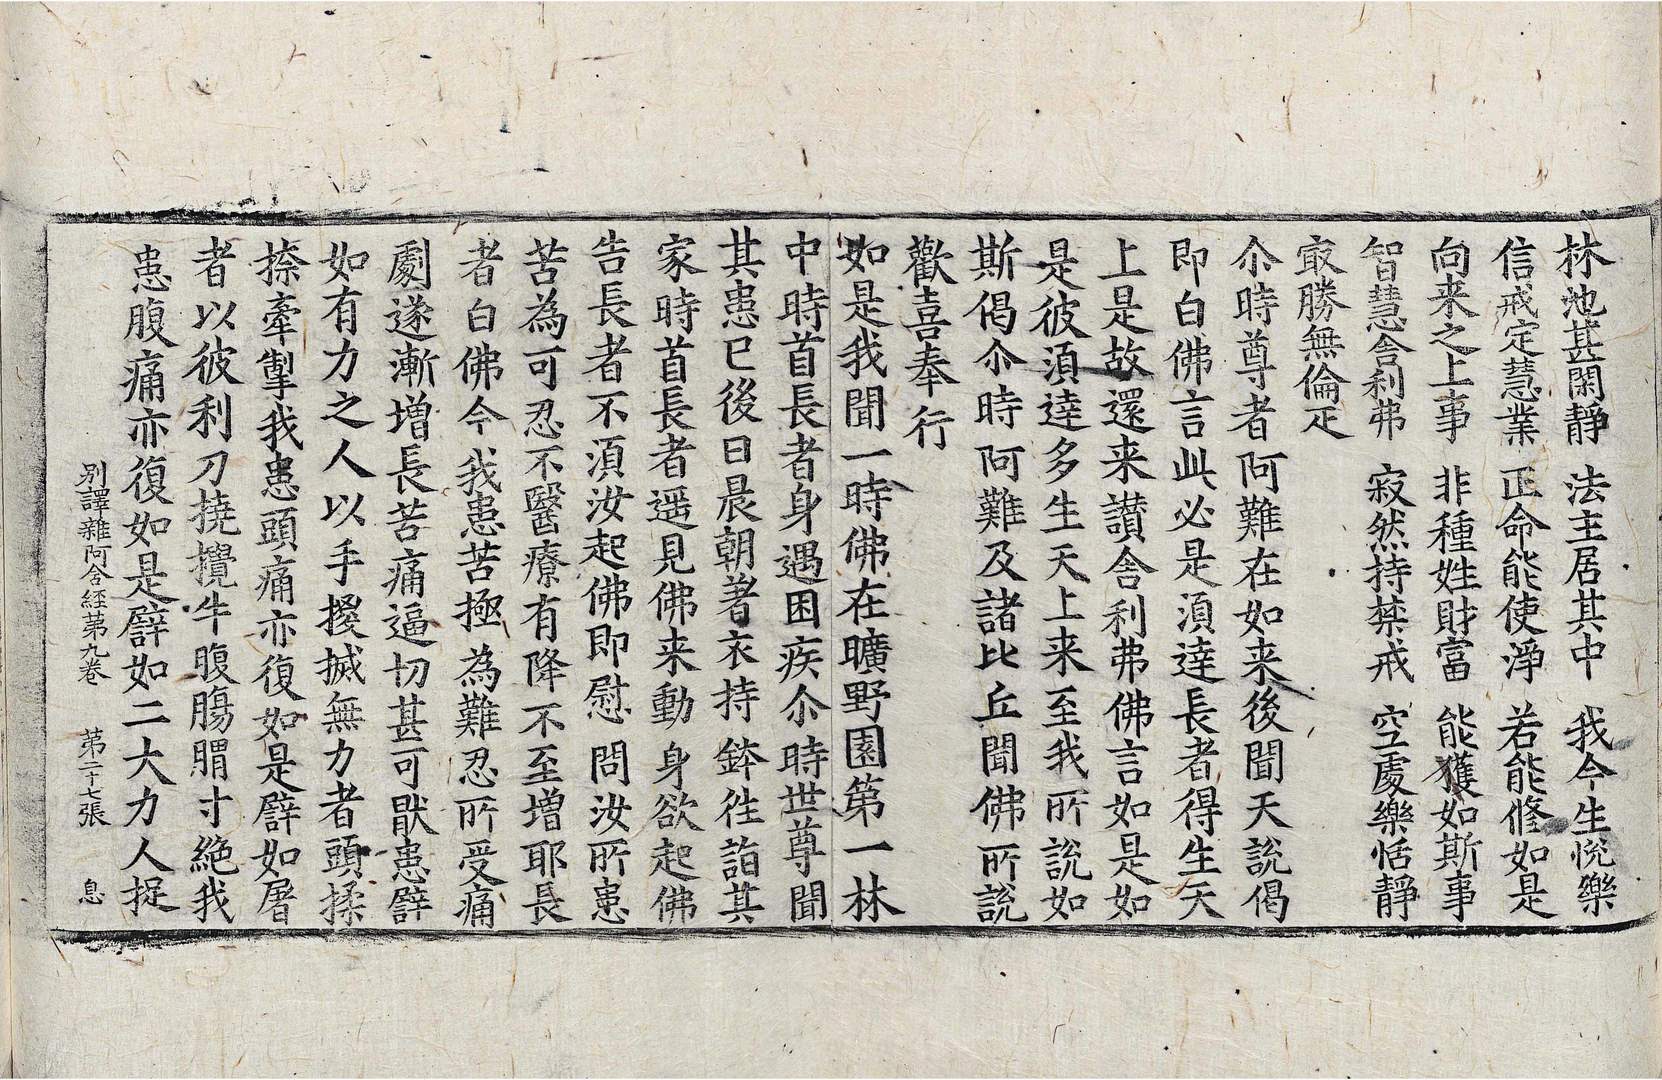 林池甚閑靜　法主居其中　我今生悅樂
信戒定慧業　正命能使淨　若能修如是
向来之上事　非種姓財富　能獲如斯事
智慧舍利弗　寂然持禁戒　空處樂恬靜
㝡勝無倫疋
尒時尊者阿難在如来後聞天說偈
即白佛言此必是湏逹長者得生天
上是故還来讃舍利弗佛言如是如
是彼湏逹多生天上来至我所說如
斯偈尒時阿難及諸比丘聞佛所說
歡喜奉行
如是我聞一時佛在曠野園第一林
中時首長者身遇困疾尒時世尊聞
其患已後日晨朝著衣持鉢徃詣其
家時首長者遥見佛来動身欲起佛
告長者不湏汝起佛即慰問汝所患
苦為可忍不醫療有降不至增耶長
者白佛今我患苦極為難忍所受痛
劇遂漸增長苦痛逼切甚可猒患譬
如有力之人以手㨖搣無力者頭揉
捺牽掣我患頭痛亦復如是譬如屠
者以彼利刀撓攪牛腹腸𦛁寸絶我
患腹痛亦復如是譬如二大力人捉
別譯雜阿含經第九卷　第二十七張　息